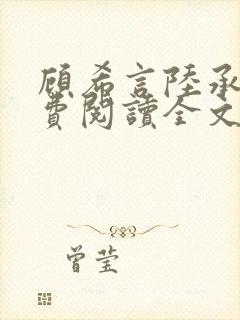 顾希言陸承
費閱讀全文
曾莹